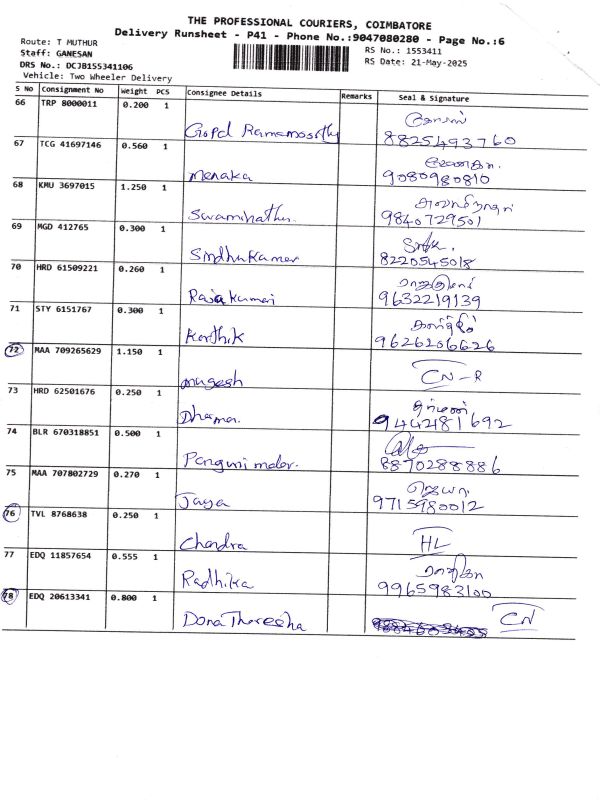 THE PROFESSIONAL COURIERS, COIMBATORE
Delivery Runsheet - P41 - Phone No.:9047080280 - Page No.:6
Route: T MUTHUR
RS No.: 1553411
Staff: GANESAN
RS Date: 21-May-2025
DRS No.: DCJB155341106
Vehicle: Two Wheeler Delivery
S No Consignment No Weight PCS Consignee Details Remarks Seal & Signature
66 TRP 8000011 0.200 1
Gopal Ramamoorthy 8825493760
67 TCG 41697146 0.560 1 மேனகா
Menaka 9080980810
68 KMU 3697015 1.250 1 சுவாமிநாதன்
Swaminathan 9840729501
69 MGD 412765 0.300 1
Sindhu Kumar 8220545018
70 HRD 61509221 0.260 1 ராஜகுமாரி
Rajakumari 9632219139
71 STY 6151767 0.300 1 கார்த்திக்
Karthik 9626206626
72 MAA 709265629 1.150 1
Mugesh CN-R
73 HRD 62501676 0.250 1 தர்மன்
Dharma. 9442481692
74 BLR 670318851 0.500 1
Panguni malar. 8870288886
75 MAA 707802729 0.270 1 ஜெயா
Jaya 9715980012
76 TVL 8768638 0.250 1
Chandra HL
77 EDQ 11857654 0.555 1 ராதிகா
Radhika 9965983100
78 EDQ 20613341 0.800 1
Dona Thereesha CN